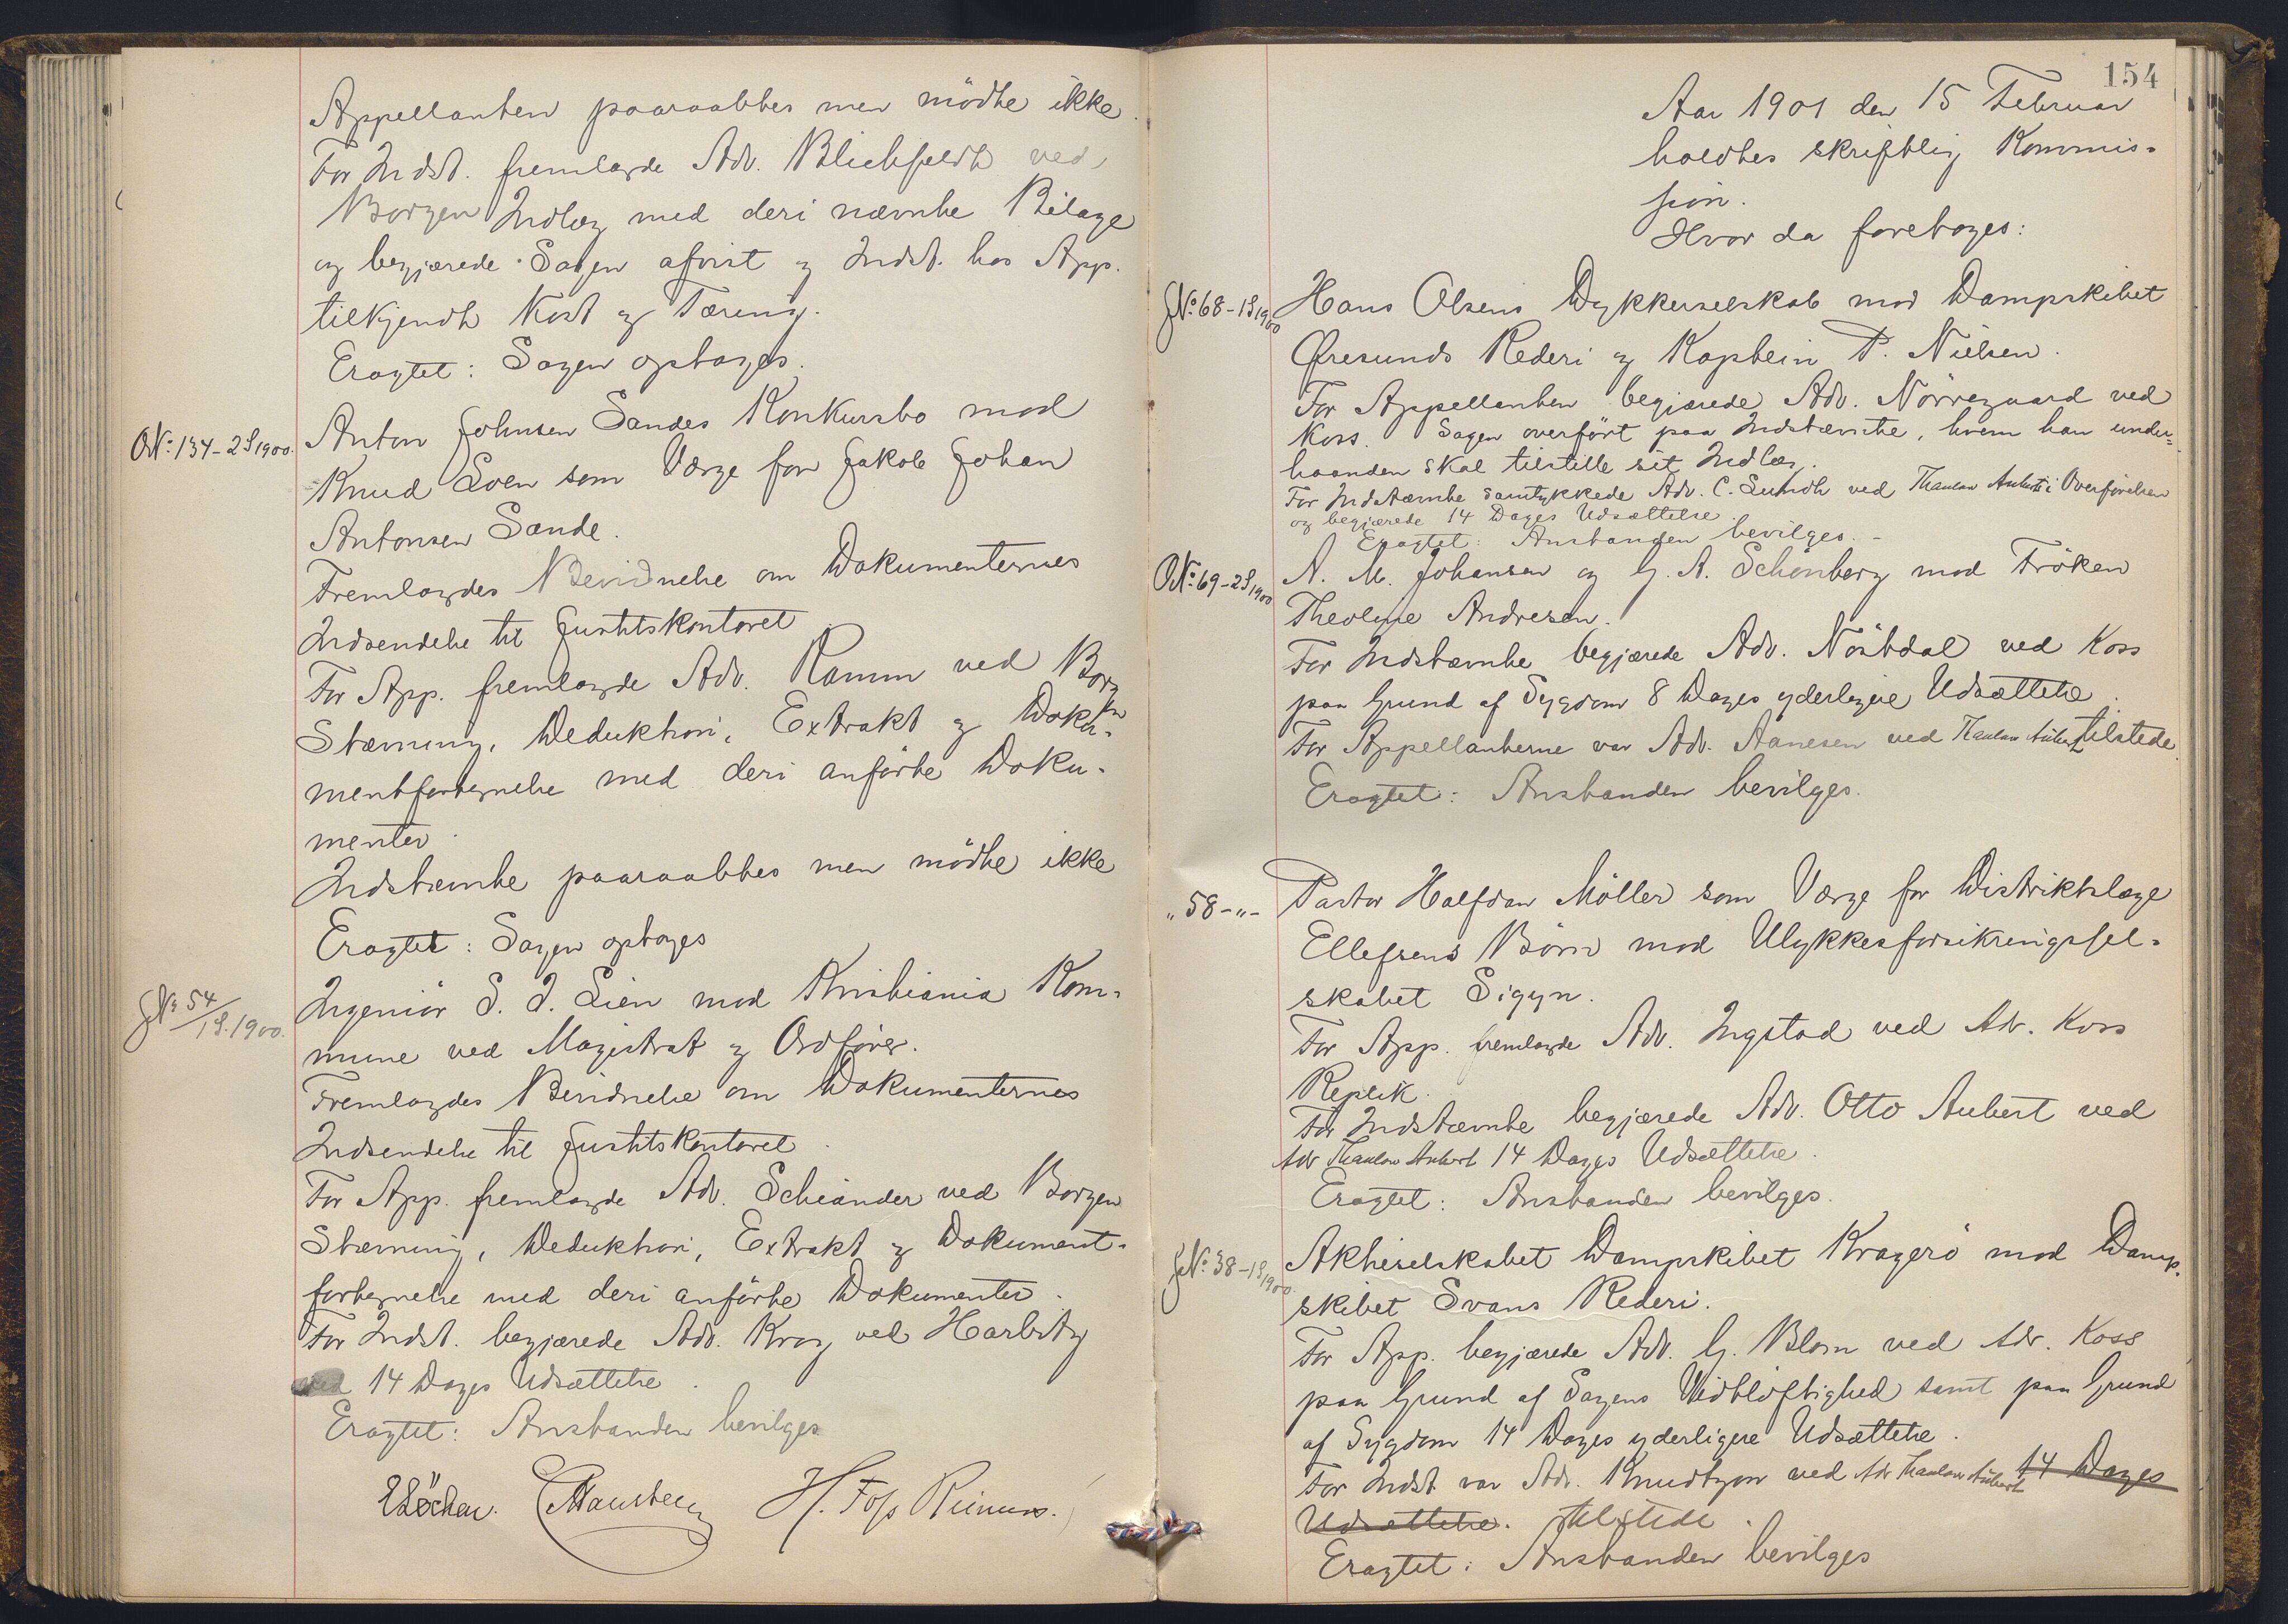 Appellanten paaraabtes men mödte ikke.
For Indst. fremlagde Adv. Blichfeldt ved
Borgen Indlæg med deri nævnte Bilage
og begjærede Sagen afvist og Indst. hos App.
tilkjendt Kost og Tæring.
Eragtet: Sagen optages.
O№ 134-2S 1900.
Anton Johnsen Sandes Konkursbo mod
Knud Loen som Værge for Jakob Johan
Antonsen Sande.
Fremlagdes Bevidnelse om Dokumenternes
Indsendelse til Justitskontoret
For App. fremlagde Adv. Ramm ved Borgen
Stævning, Deduktion, Extrakt og Doku-
mentfortegnelse med deri anførte Doku-
menter.
Indstævnte paaraabtes men mödte ikke
Eragtet: Sagen optages
J№ 54/1S. 1900.
Ingeniör S. J. Lien mod Kristiania Kom-
mune ved Magistrat og Ordfører.
Fremlagdes Bevidnelse om Dokumenternes
Indsendelse til Justitskontoret.
For App. fremlagde Adv. Schiander ved Borgen
Stævning, Deduktion, Extrakt og Dokument-
fortegnelse med deri anførte Dokumenter.
For Indst. begjærede Adv. Krag ved Harbitz
14 Dages Udsættelse.
Eragtet: Anstanden bevilges
H. Foss
154
Aar 1901 den 15 Februar
holdtes skriftlig Kommis-
sion.
Hvor da foretoges:
J№ 68-1S 1900
Hans Olsens Dykkerselskab mod Dampskibet
Øresunds Rederi og Kaptein P. Nielsen.
For Appellanten begjærede Adv. Nörregaard ved
Koss. Sagen overført paa Indstævnte, hvem han under-
haanden skal tilstille sit Indlæg.
For Indstævnte samtykkede Adv. C. Lundh ved Thaulow Aubert i Overførelsen
og begjærede 14 Dages Udsættelse.
Eragtet: Anstanden bevilges. -
O№ 69-2S 1900
A. M. Johansen og G. A. Schönberg mod Fröken
Theoline Andresen.
For Indstævnte begjærede Adv. Nöstdal ved Koss
paa Grund af Sygdom 8 Dages yderligere Udsættelse.
For Appellanterne var Adv. Aanesen ved Thaulow Aubert tilstede.
Eragtet: Anstanden bevilges.
" 58-"-
Pastor Halfdan Möller som Værge for Distriktslæge
Ellefsens Børn mod Ulykkesforsikringssel-
skabet Sigyn.
For App. fremlagde Adv. Ingstad ved Adv. Koss
Replik.
For Indstævnte begjærede Adv. Otto Aubert ved
Adv Thaulow Aubert 14 Dages Udsættelse.
Eragtet: Anstanden bevilges.
J№ 38-1S 1900.
Aktieselskabet Dampskibet Kragerö mod Damp-
skibet Svans Rederi.
For App. begjærede Adv. G. Blom ved Adv. Koss
paa Grund af Sagens Vidtløftighed samt paa Grund
af Sygdom 14 Dages yderligere Udsættelse.
For Indst. var Adv. Knudtzon ved Adv Thaulow Aubert 14 Dages
Udsættelse. tilstede.
Eragtet: Anstanden bevilges